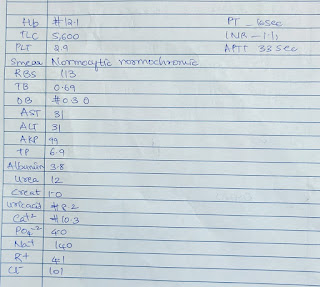 Hb #12.1 PT - 16sec
TLC 5,600 INR - 1.1
PLT 2.9 APTT 33 sec
Smear Normocytic normochromic
RBS 113
TB 0.69
DB #0.30
AST 31
ALT 31
AKP 99
TP 6.9
Albumin 3.8
Urea 12
Creat 1.0
Uricacid #8.2
Ca+2 #10.3
PO4-2 4.0
Na+ 140
K+ 4.1
Cl- 101